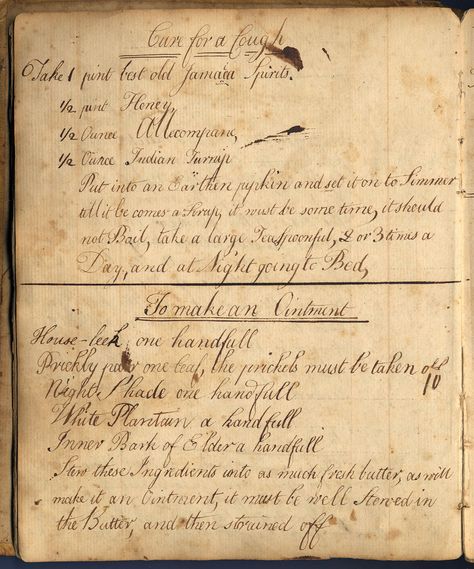 Cure for a Cough
Take 1 pint best old Jamaca Spirits.
1/2 pint Honey,
1/2 Ounce Allecompane,
1/2 Ounce Indian Turnip
Put into an Earthen pipkin and set it on to Simmer
till it be comes a Sirap, it must be some time, it should
not Boil, take a large Teaspoonful, 2 or 3 times a
Day, and at Night going to Bed,
To make an Ointment
House-leek one handfull
Prickly pair one leaf, the prickels must be taken off
10
Night Shade one handfull
White Plantain a handfull
Inner Bark of Elder a handfull
Stew these Ingredients into as much fresh butter, as will
make it an Ointment, it must be well Stewed in
the Butter, and then strained off